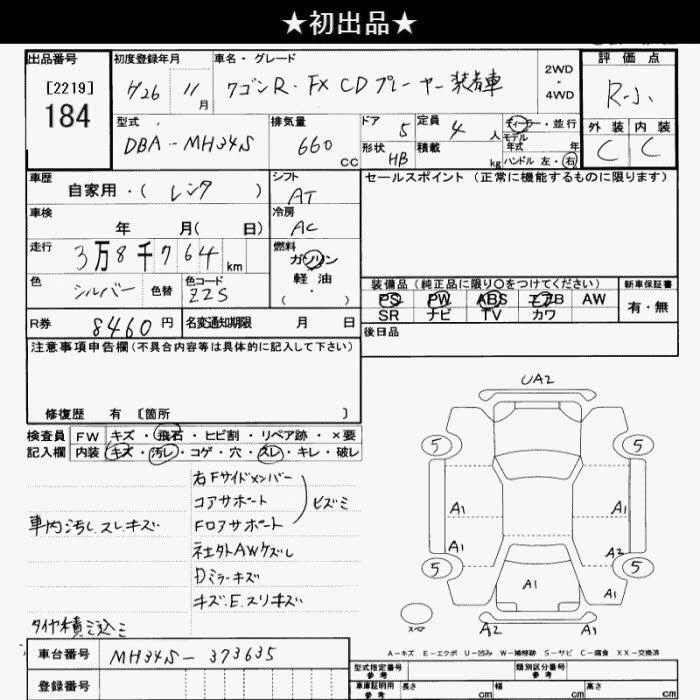 ★初出品★
出品番号
[2219]
184
初度登録年月
H26 11月
車名・グレード
ワゴンR・FX CDプレーヤー装着車
2WD
・
4WD
評価点
R-小
型式
DBA-MH34S
排気量
660 CC
ドア 5
定員 4 人
形状 HB
積載 kg
ディーラー・並行
モデル
年式 年
ハンドル 左・右
外装 内装
C C
車歴
自家用・( レンタ )
シフト
AT
冷房
AC
車検
年 月( 日)
走行
3万8千764 km
燃料
ガソリン
軽油
( ・ )
色
シルバー 色替
色コード
Z2S
R券 8460円
名変通知期限 月 日
セールスポイント (正常に機能するものに限ります)
装備品 (純正品に限り〇をつけてください)
新車保証書
PS PW ABS エアB AW
SR ナビ TV カワ
有・無
後日品
注意事項申告欄 (不具合内容等は具体的に記入して下さい)
修復歴 有 [箇所 ]
検査員
記入欄
FW キズ・飛石・ヒビ割・リペア跡・×要
内装 キズ・汚レ・コゲ・穴・スレ・キレ・破レ
右Fサイドメンバー
コアサポート
Fロアサポート
ヒズミ
車内汚レ.スレ.キズ
社外AWケズレ
Dミラーキズ
キズ.E.スリキズ
タイヤ積ミ込ミ
UA2
5 5
A1 A1
A1 A3
5 5
A1
スペア
A2 A1
A-キズ E-エクボ U-凹み W-補修跡 S-サビ C-腐食 XX-交換済
車台番号 MH34S-373635
登録番号
型式指定番号
参考
類別区分番号
参考
車庫証明用
参考
長さ cm
幅 cm
高さ cm